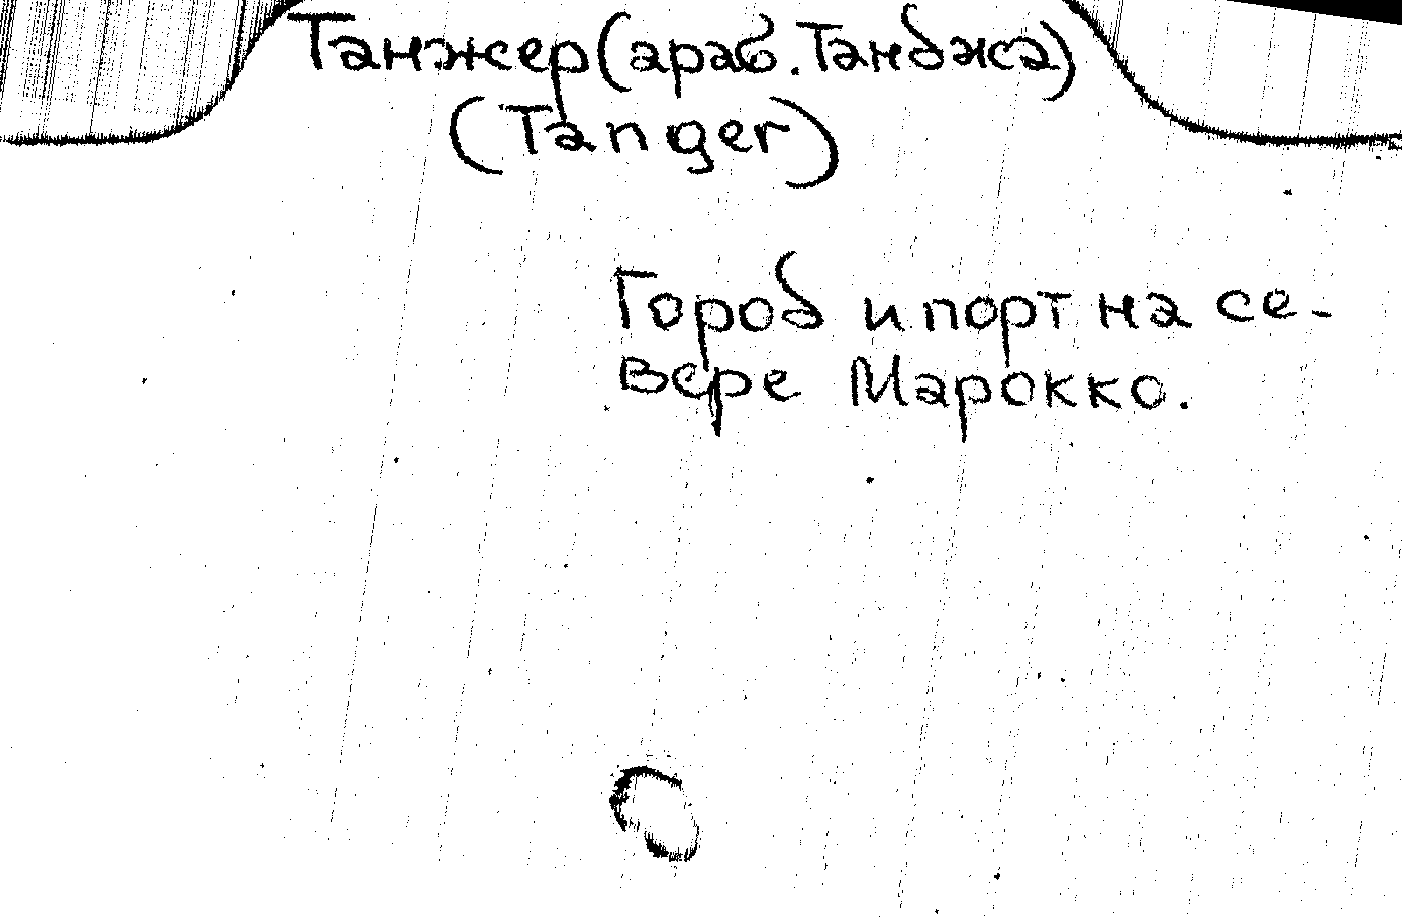 Танжер (араб. Танджа)
(Tanger)
Город и порт на се-
вере Марокко.